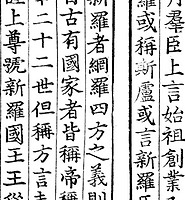 羣臣上言始祖創業
羅或稱斯盧或言新羅
新羅者網羅四方之義則
自古有國家者皆稱帝稱
二十二世但稱方言
上尊號新羅國王王從